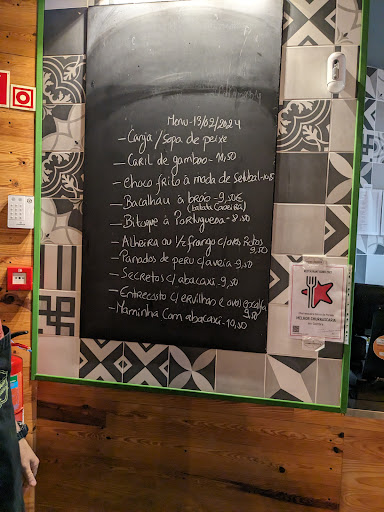 Menu - 13/02/2024
- Canja / Sopa de peixe
- Caril de gambas - 10,50
- choco frito à moda de Setúbal - 10,5
- Bacalhau à braio - 9,50€
(batata caseira)
- Bitoque à Portuguesa - 8,50
- Alheira ou 1/2 frango c/ovos Rotos
9,50
- Panados de peru c/aveia - 9,50
- Secretos c/ abacaxi - 9,50
- Entrecosto c/ ervilhas e ovos escalfa
9,50
- Maminha Com abacaxi - 10,50